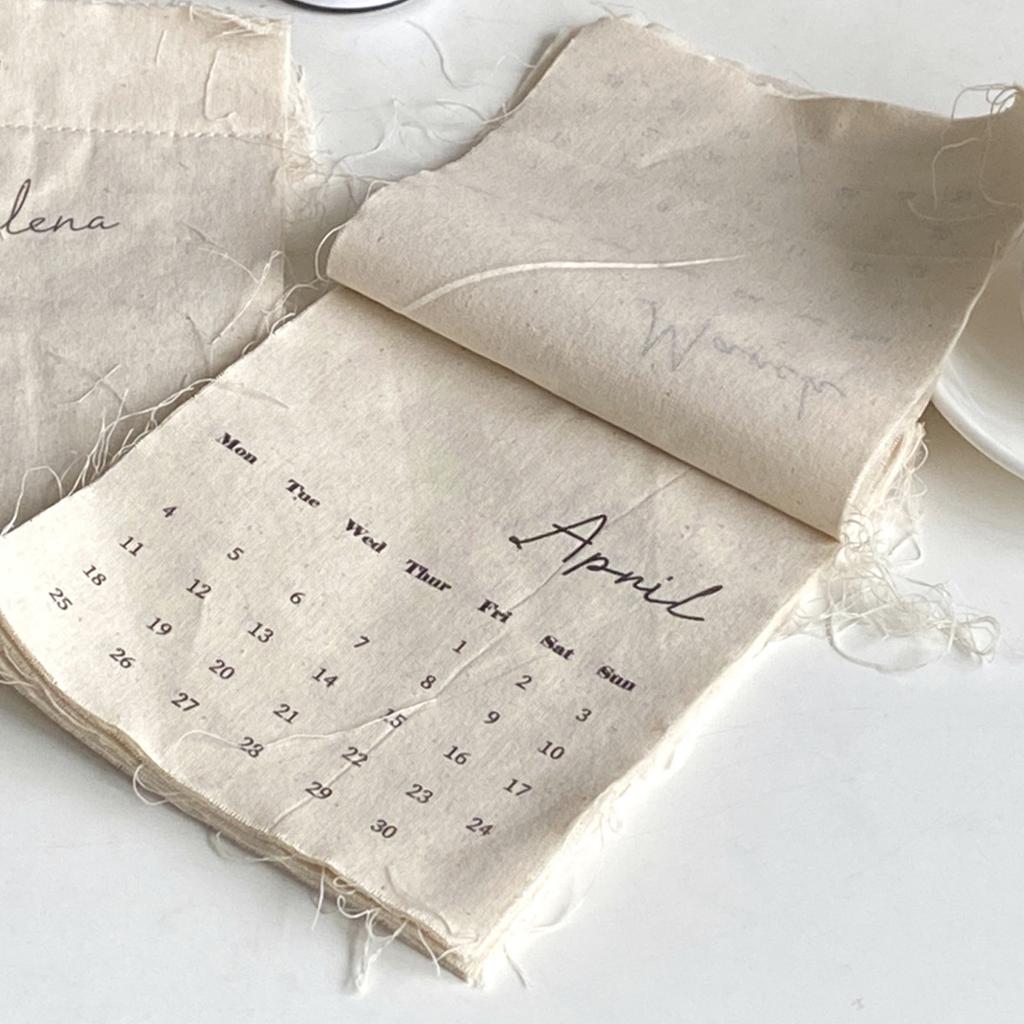 lena
April
Mon Tue Wed Thur Fri Sat Sun
1 2 3
4 5 6 7 8 9 10
11 12 13 14 15 16 17
18 19 20 21 22 23 24
25 26 27 28 29 30